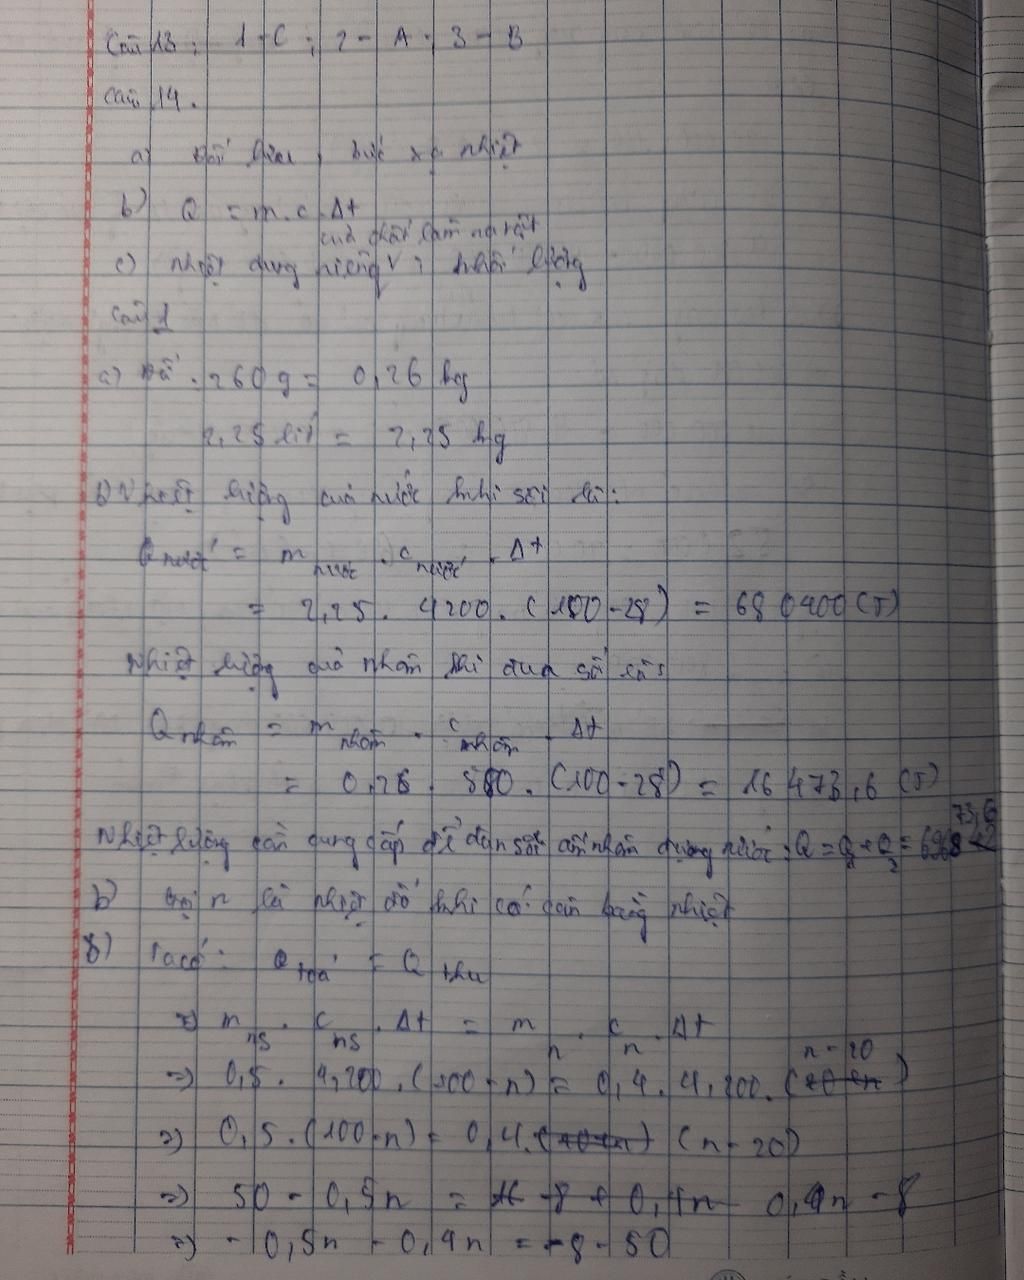 Câu 13: 1 - C ; 2 - A . 3 - B
Câu 14.
a) Đối lưu, bức xạ nhiệt
b) Q = m.c.Δt
của chất làm nên vật
c) nhiệt dung riêng v ; khối lượng
Câu 1
a) Đổi: 260g = 0,26 kg
2,25 lít = 2,25 kg
b) Nhiệt lượng của nước khi sôi là:
Qnước = mnước . cnước . Δt
= 2,25. 4200. (100-28) = 680400 (J)
Nhiệt lượng của nhôm khi đun sôi là:
Qnhôm = mnhôm . cnhôm . Δt
= 0,26. 880. (100-28) = 16473,6 (J)
73,6
Nhiệt lượng cần cung cấp để đun sôi ấm nhôm đựng nước: Q = Q1 + Q2 = 6968
b) Gọi n là nhiệt độ khi có cân bằng nhiệt
8) Ta có: Qtoả = Qthu
=> mns . cns . Δt = mn . cn . Δt
n - 20
=> 0,5. 4,200.(100-n) = 0,4. 4,200. ( )
=> 0,5.(100-n) = 0,4. (n-20)
=> 50 - 0,5n = 0,4n - 8
=> -0,5n - 0,4n = -8 - 50